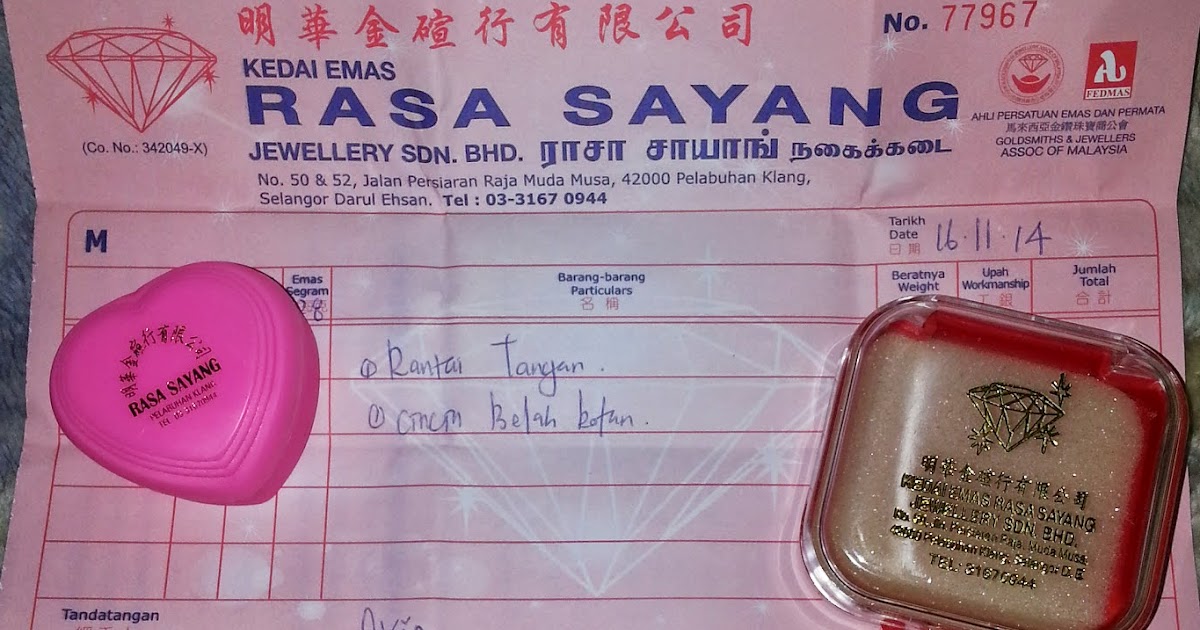 明華金碹行有限公司
No. 77967
KEDAI EMAS
RASA SAYANG
JEWELLERY SDN. BHD. ராசா சாயாங் நகைக்கடை
(Co. No.: 342049-X)
No. 50 & 52, Jalan Persiaran Raja Muda Musa, 42000 Pelabuhan Klang,
Selangor Darul Ehsan. Tel : 03-3167 0944
FEDMAS
AHLI PERSATUAN EMAS DAN PERMATA
馬來西亞金鑽珠寶商公會
GOLDSMITHS & JEWELLERS
ASSOC OF MALAYSIA
M
Tarikh
Date
日期
16.11.14
Emas
Segram
Barang-barang
Particulars
名稱
Beratnya
Weight
Upah
Workmanship
工銀
Jumlah
Total
合計
① Rantai Tangan.
① Cincin Belah Rotan.
明華金碹行有限公司
RASA SAYANG
PELABUHAN KLANG
明華金碹行有限公司
KEDAI EMAS RASA SAYANG
JEWELLERY SDN. BHD.
Persiaran Raja Muda Musa,
42000 Pelabuhan Klang, Selangor D. E.
TEL: 31670944
Tandatangan